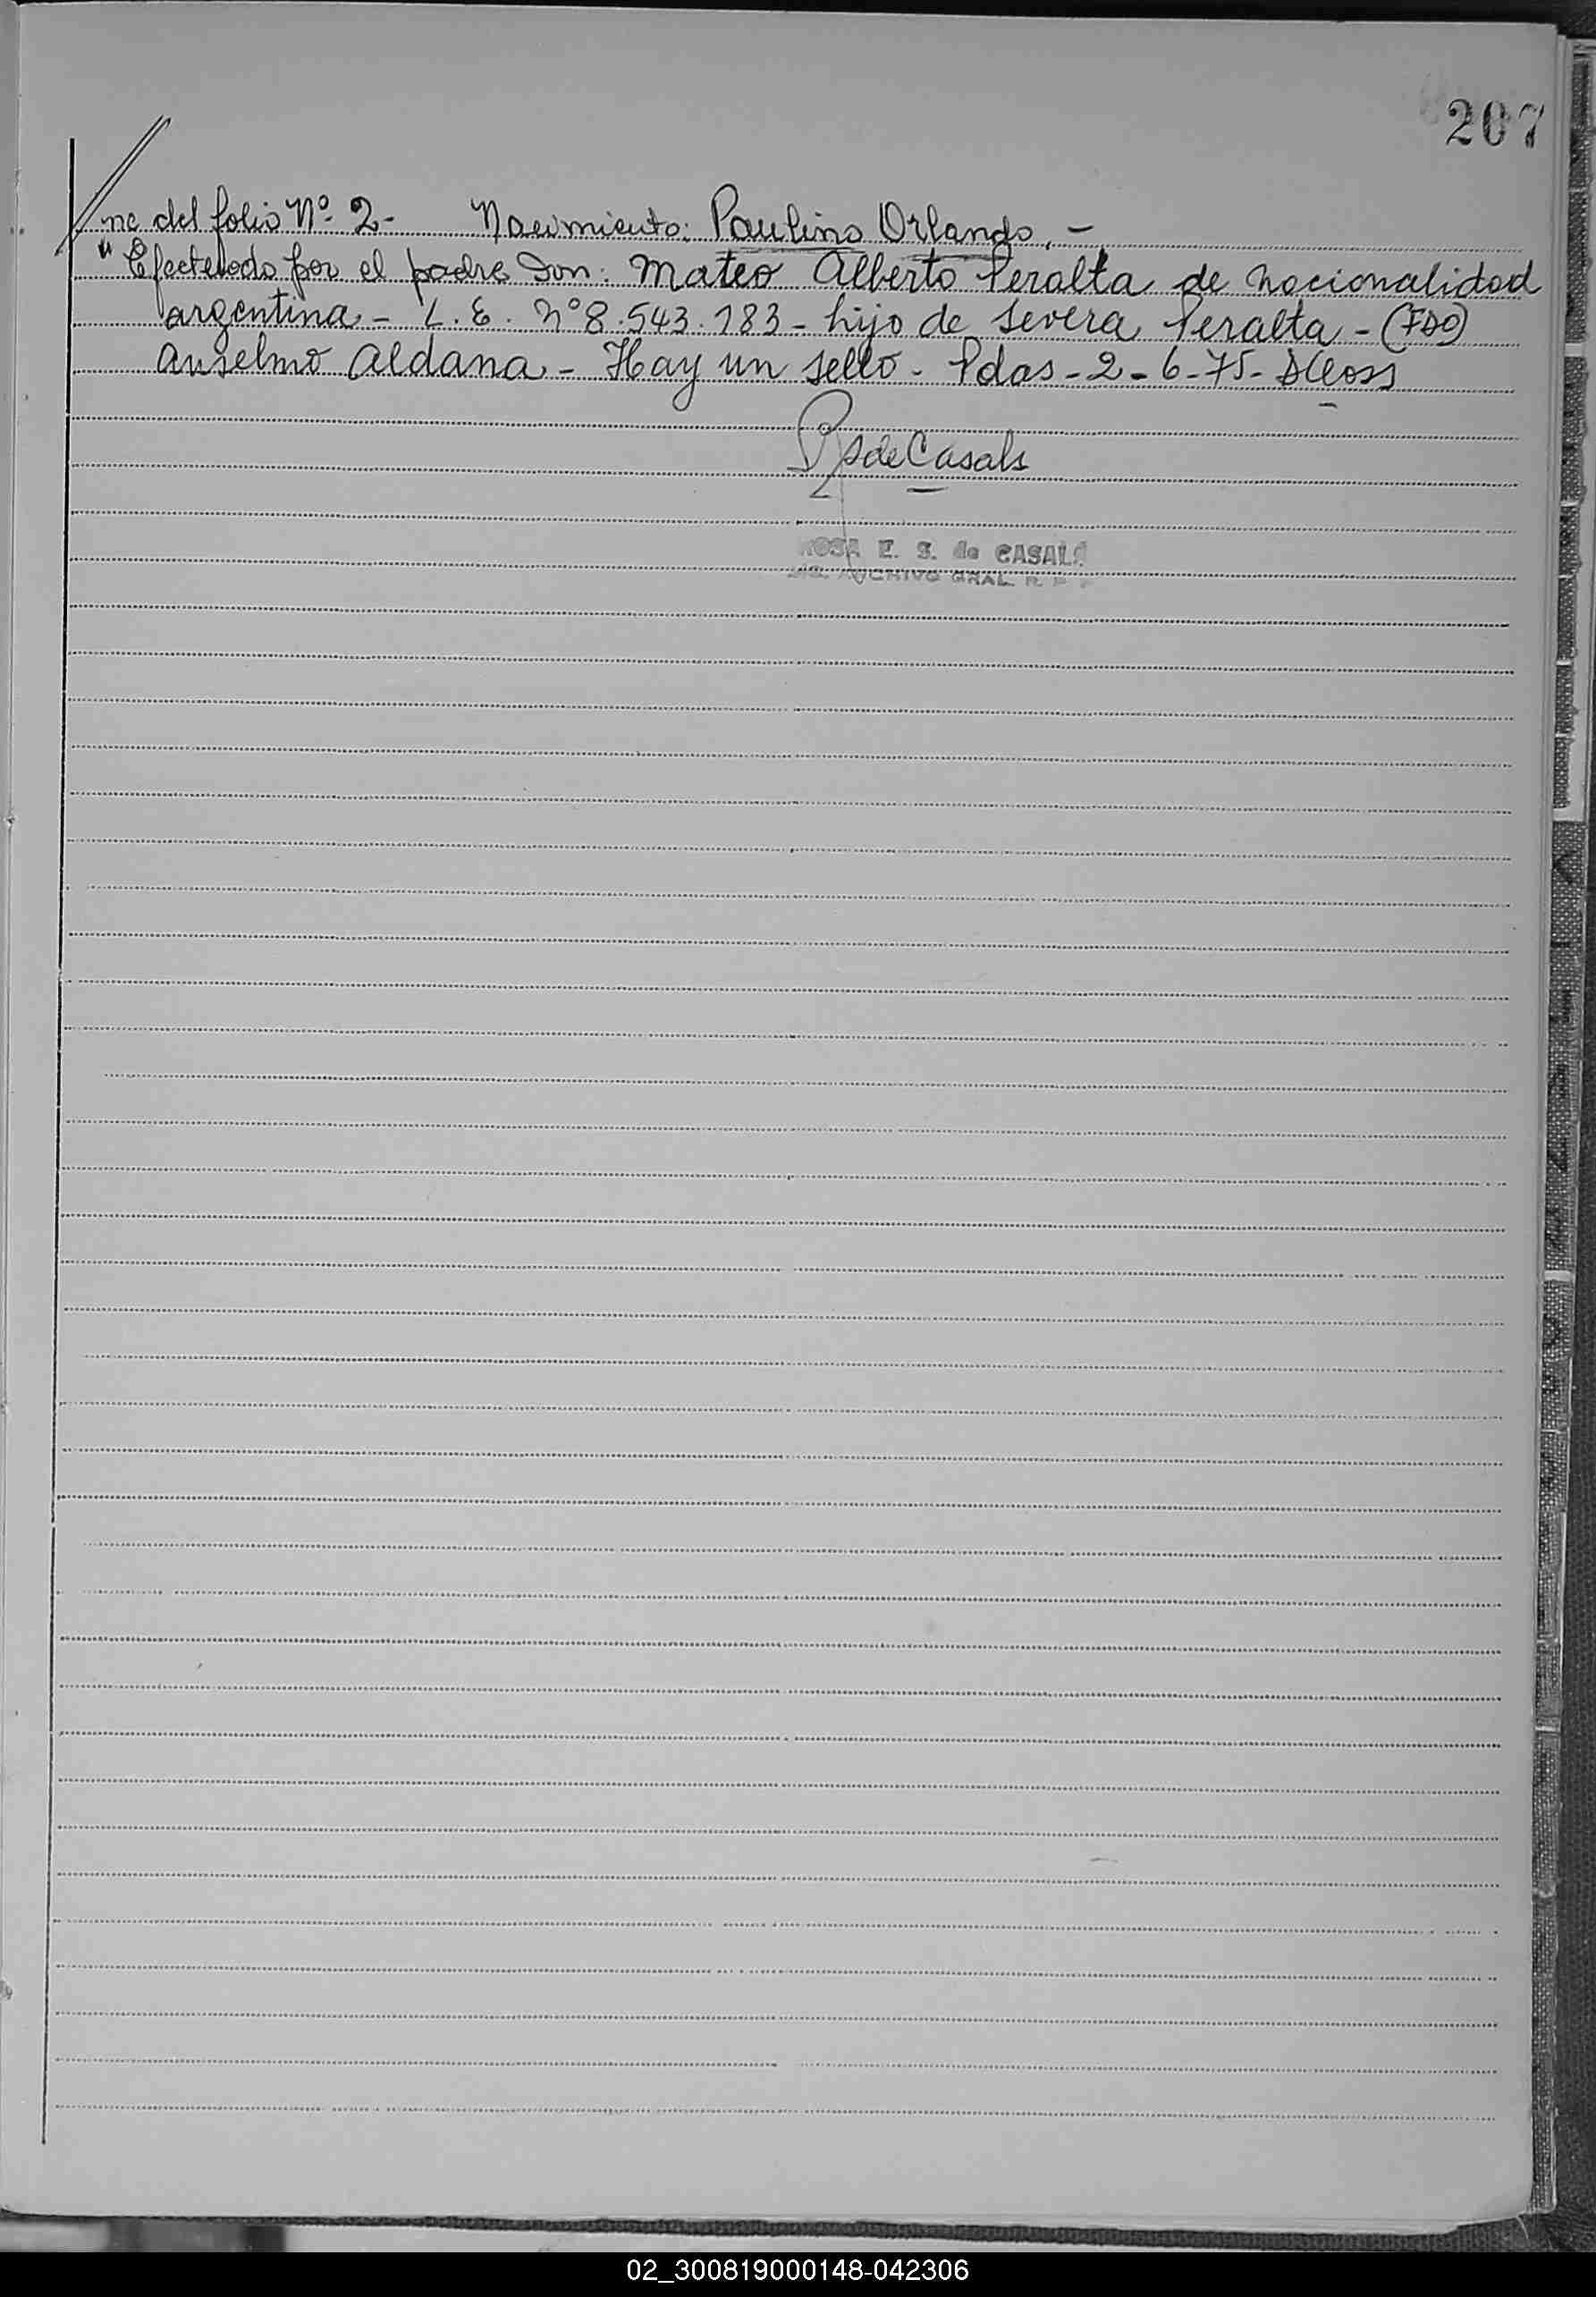 207
ne del folio Nº 2- Nacimiento: Paulino Orlando. -
" Efectuado por el padre Don: Mateo Alberto Peralta de nacionalidad
argentina - L. E. Nº 8.543.183 - hijo de Severa Peralta - (FDO)
Anselmo Aldana - Hay un sello - Pdas - 2 - 6 - 75 -
de Casals
ROSA E. S. de CASALS
ARCHIVO GRAL. R.
02_300819000148-042306